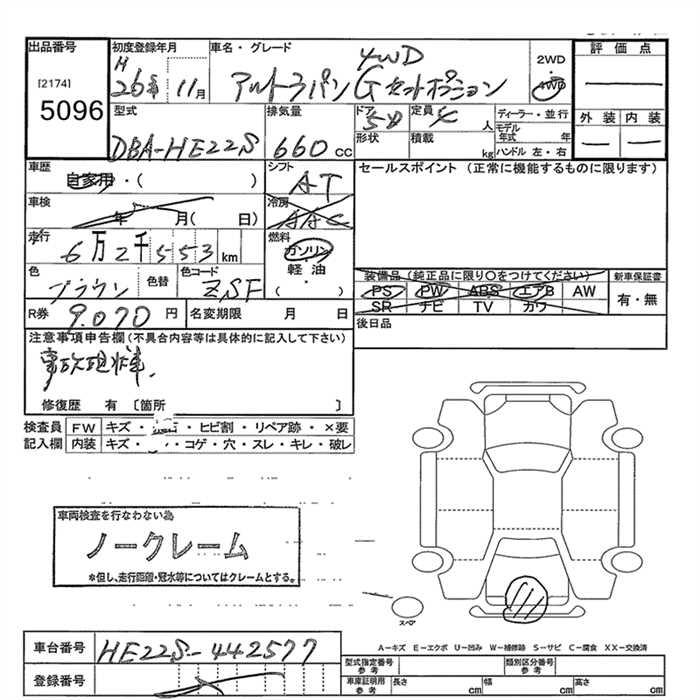 出品番号 初度登録年月 車名・グレード 2WD 評価点
[2174] H 26年 11月 アルトラパン G セットオプション 4WD 4WD
5096
型式 排気量 ドア 定員 ディーラー・並行 外装 内装
DBA-HE22S 660 cc 5D 4 人 モデル年式 年
形状 積載 kg ハンドル 左・右
車歴 自家用・( ) シフト AT セールスポイント (正常に機能するものに限ります)
車検 年 月( 日) 冷房 AAC
走行 6万2千553km 燃料 ガソリン
軽油
( ・ )
色 ブラウン 色替 色コード ZSF 装備品(純正品に限り○をつけてください) 新車保証書
PS PW ABS エアB AW 有・無
SR ナビ TV カワ
R券 9.070 円 名変期限 月 日 後日品
注意事項申告欄(不具合内容等は具体的に記入して下さい)
事故現状車.
修復歴 有 〔箇所 〕
検査員 FW キズ・ ・ヒビ割・リペア跡・×要
記入欄 内装 キズ・ ・コゲ・穴・スレ・キレ・破レ
車両検査を行なわない為
ノークレーム
*但し、走行距離・冠水等についてはクレームとする。
スペア
A−キズ E−エクボ U−凹み W−補修跡 S−サビ C−腐食 XX−交換済
車台番号 HE22S-442577
型式指定番号 参考 類別区分番号 参考
登録番号
車庫証明用 参考 長さ cm 幅 cm 高さ cm